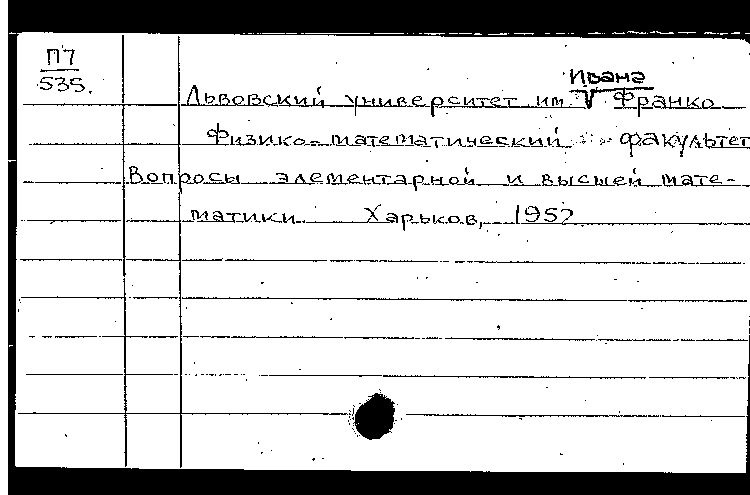 П7
535.
Ивана
Львовский университет им V Франко
Физико-математический факультет
Вопросы элементарной и высшей мате-
матики Харьков, 1952